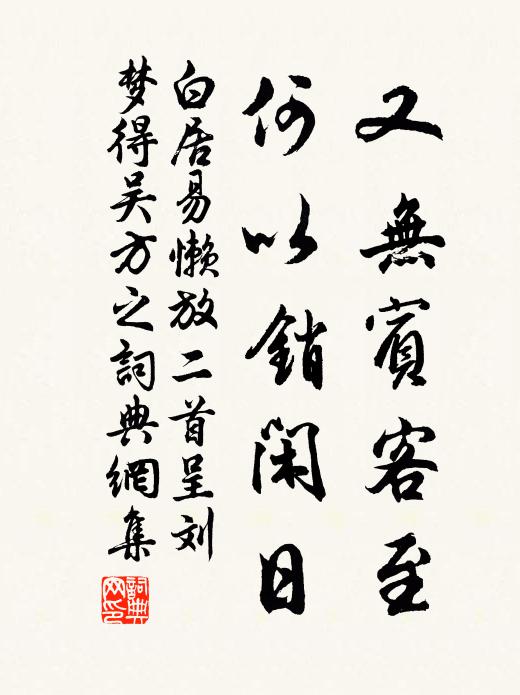 又無賓客至
何以銷閑日
白居易懒放二首呈刘
梦得吴方之詞典網集
詞典网印